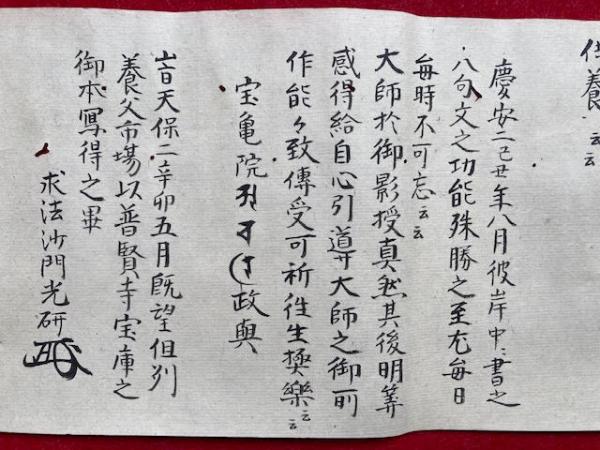 供養云云
慶安二己丑年八月彼岸中書之
八句文之功能殊勝之至尤毎日
毎時不可忘云云
大師於御影授真然其後明算
感得給自心引導大師之御所
作能々致傳受可祈徃生㷡樂云云
宝亀院 政與
旹天保二辛卯五月既望但列
養父市場以普賢寺宝庫之
御本寫得之畢
求法沙門光研